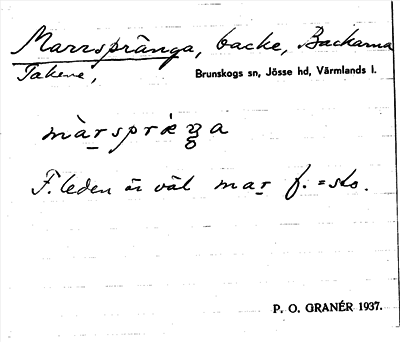 Marrspränga, backe, Backarna
Takene,
Brunskogs sn, Jösse hd, Värmlands l.
F. leden är väl mar f. = sto.
P. O. GRANÉR 1937.